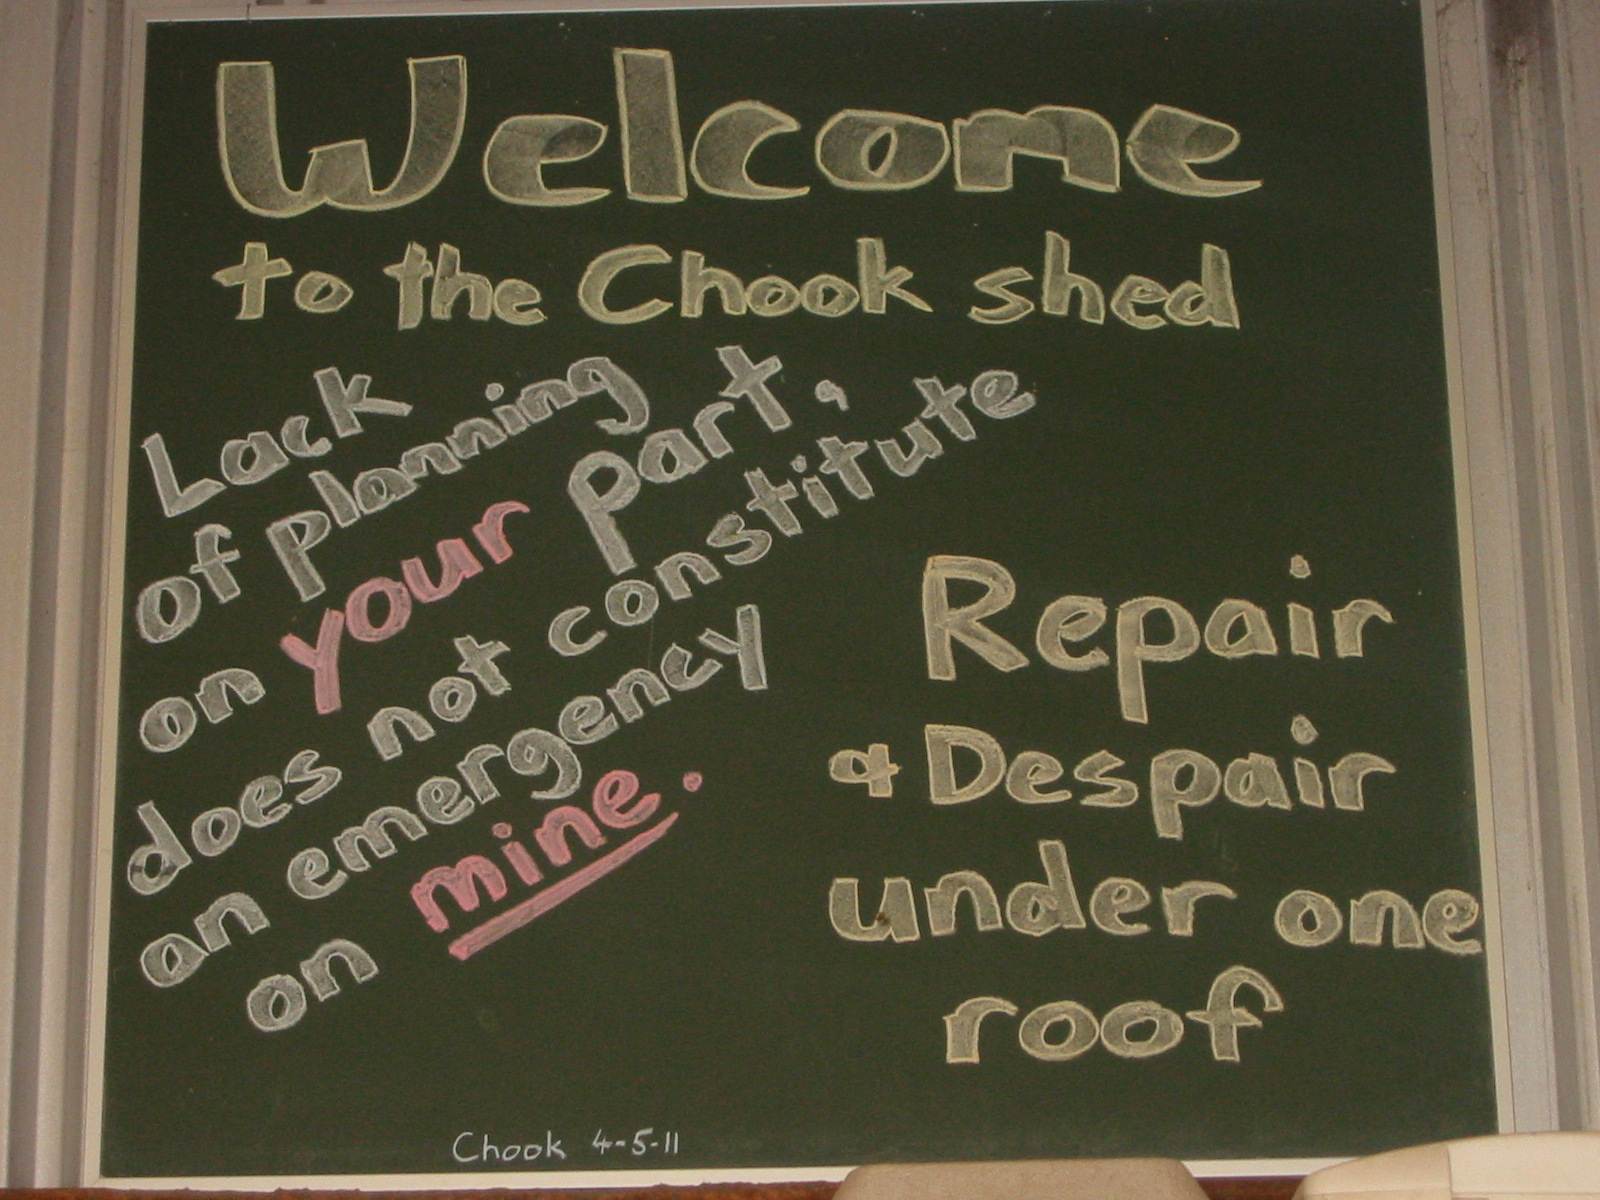 Welcome
to the Chook shed
Lack
of planning
on your part,
does not constitute
an emergency
on mine.
Repair
& Despair
under one
roof
Chook 4-5-11